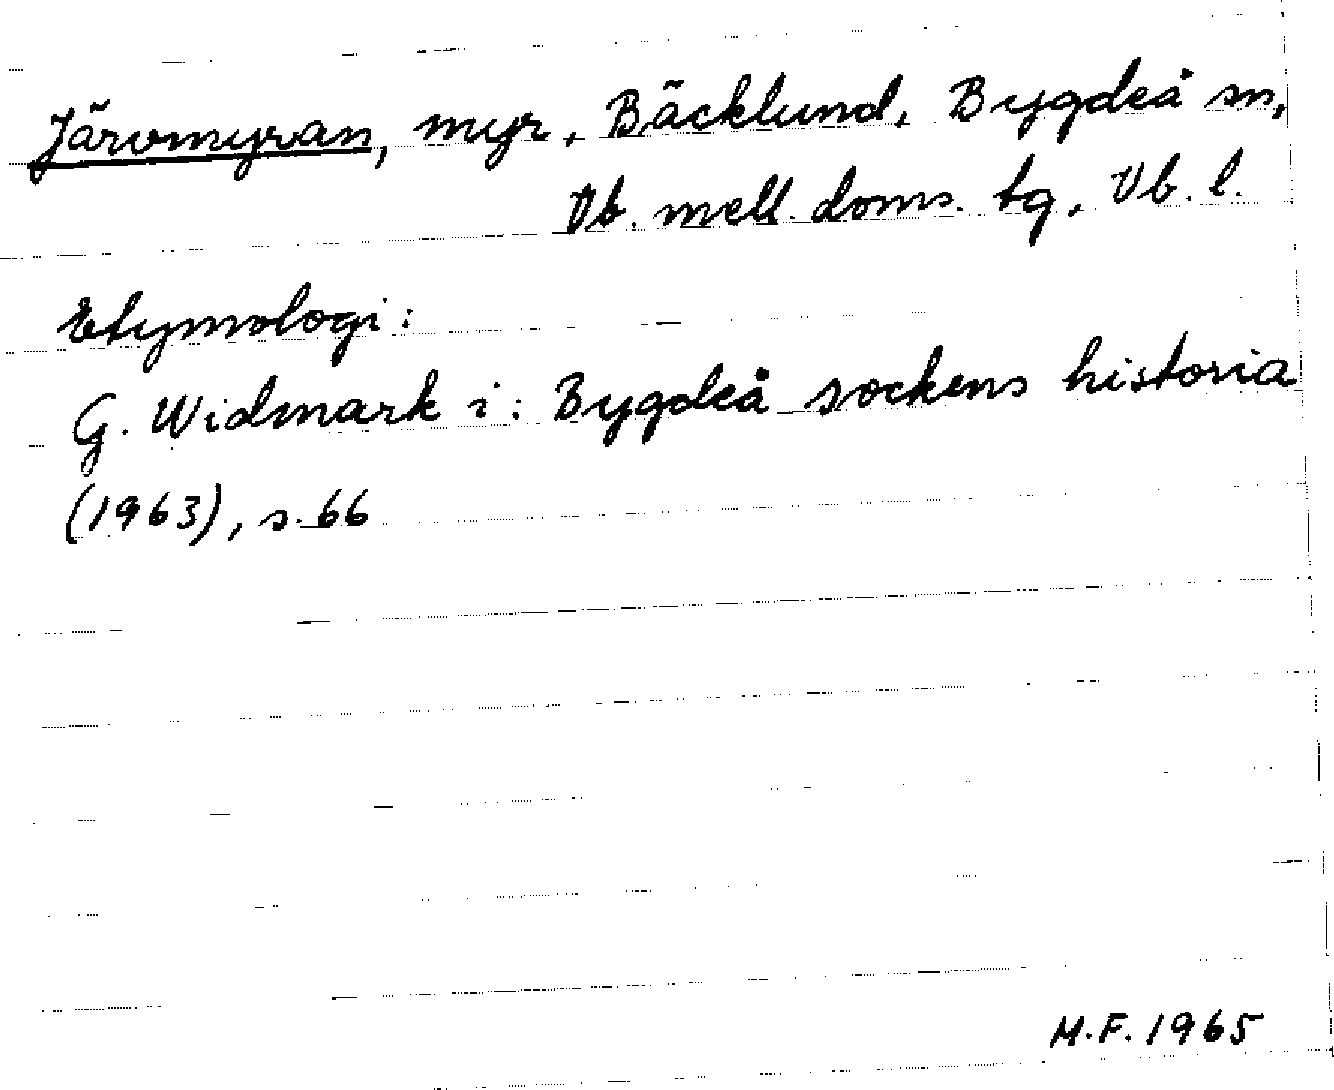 Järvmyran, myr, Bäcklund, Bygdeå sn,
Vb. mell. doms. tg, Vb. l.
Etymologi:
G. Widmark i: Bygdeå sockens historia
(1963), s. 66
M.F. 1965